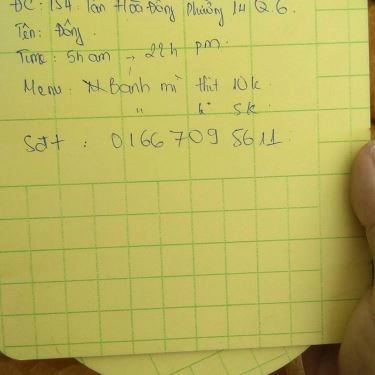 ĐC: 154 Tân Hoà Đông Phường 14 Q.6.
Tên: Đông.
Time: 5h am → 22h pm.
Menu: Bánh mì thịt 10k
" 5k
Sđt: 0166 709 5611